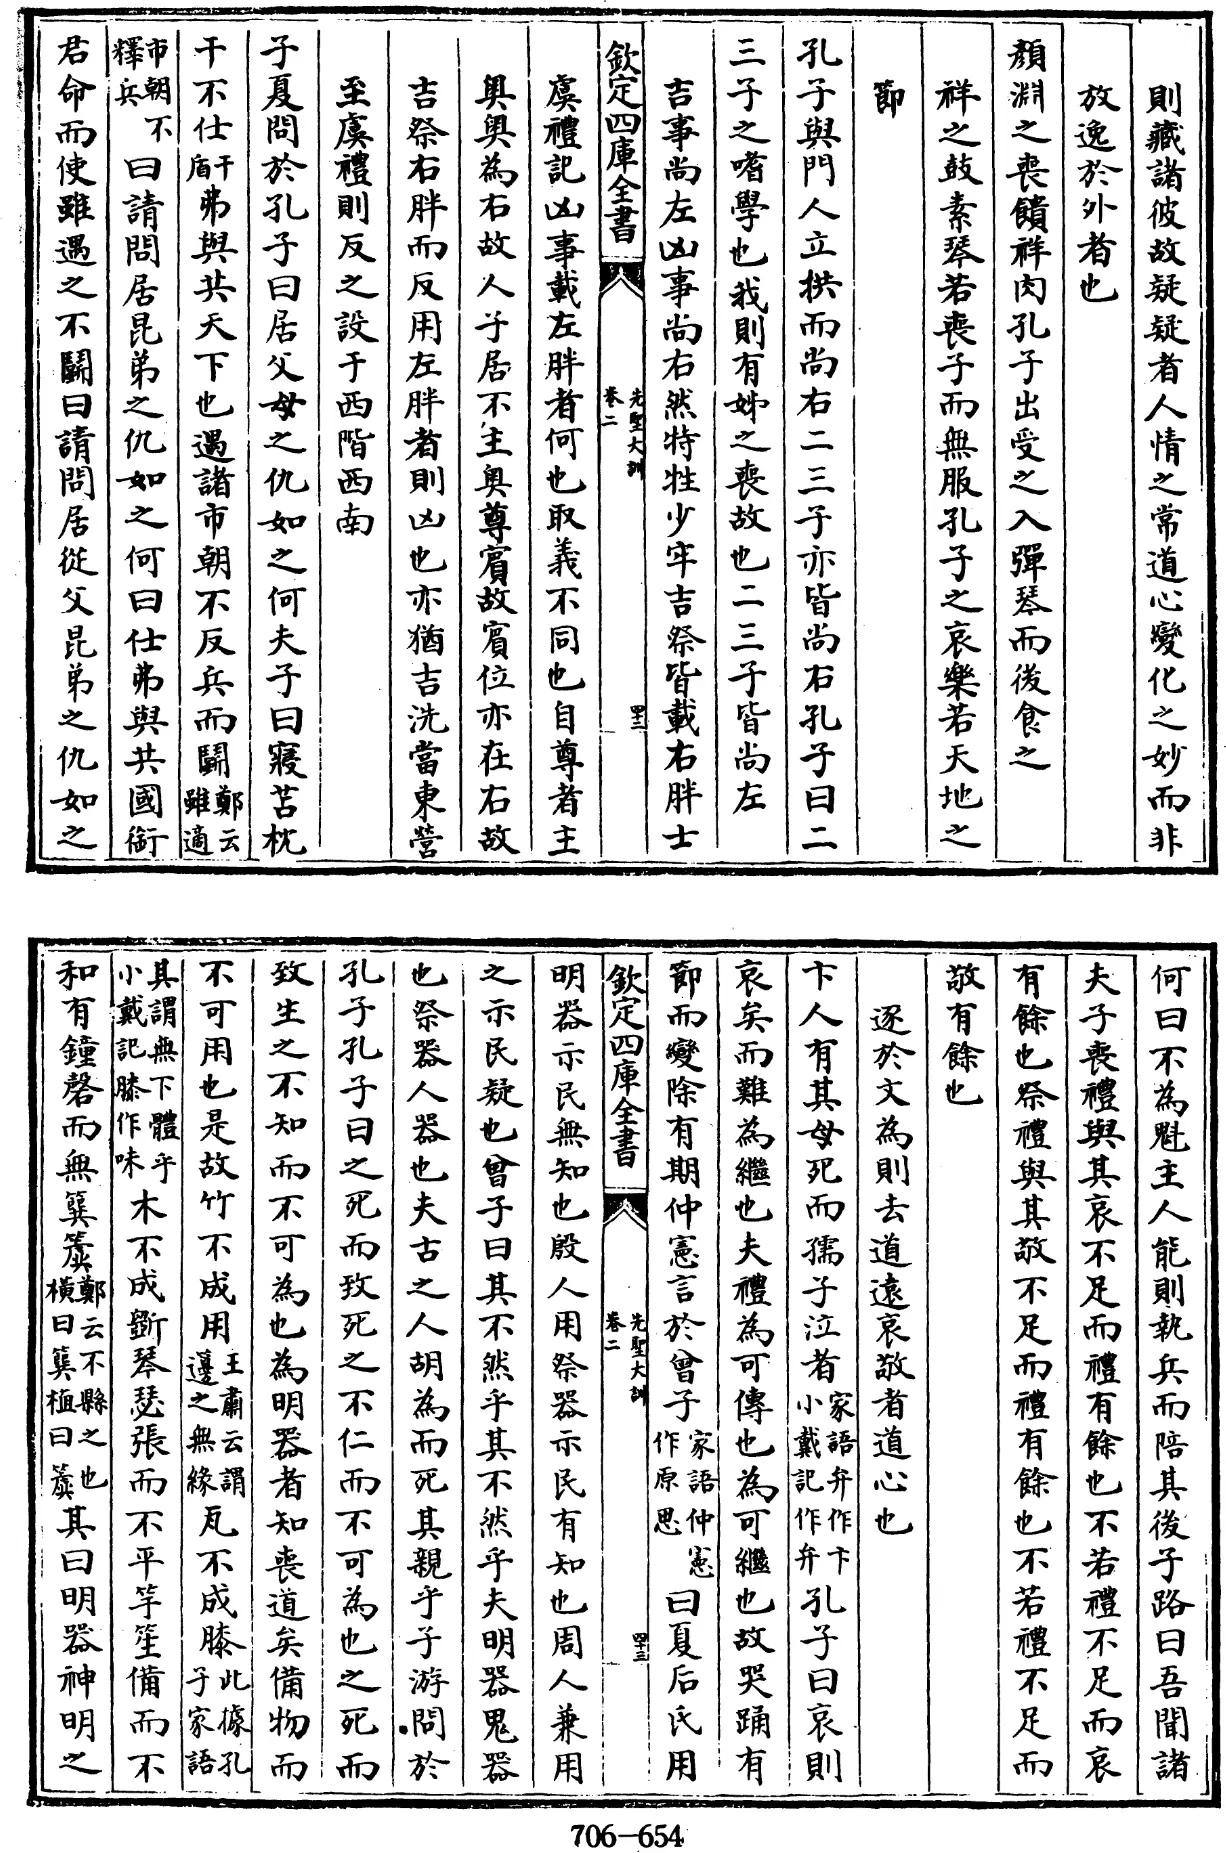 則藏諸彼故疑疑者人情之常道心變化之妙而非
放逸於外者也
顏淵之喪饋祥肉孔子出受之入彈琴而後食之
祥之鼓素琴若喪子而無服孔子之哀樂若天地之
節
孔子與門人立拱而尚右二三子亦皆尚右孔子曰二
三子之嗜學也我則有姊之喪故也二三子皆尚左
吉事尚左凶事尚右然特牲少牢吉祭皆載右胖士
欽定四庫全書
先聖大訓
卷二
虞禮記凶事載左胖者何也取義不同也自尊者主
奧奧為右故人子居不主奧尊賓故賓位亦在右故
吉祭右胖而反用左胖者則凶也亦猶吉洗當東營
至虞禮則反之設于西階西南
子夏問於孔子曰居父母之仇如之何夫子曰寢苫枕
干不仕干盾弗與共天下也遇諸市朝不反兵而鬭鄭云雖適
市朝不釋兵曰請問居昆弟之仇如之何曰仕弗與共國銜
君命而使雖遇之不鬭曰請問居從父昆弟之仇如之
何曰不為魁主人能則執兵而陪其後子路曰吾聞諸
夫子喪禮與其哀不足而禮有餘也不若禮不足而哀
有餘也祭禮與其敬不足而禮有餘也不若禮不足而
敬有餘也
逐於文為則去道遠哀敬者道心也
卞人有其母死而孺子泣者家語弁作卞小戴記作弁孔子曰哀則
哀矣而難為繼也夫禮為可傳也為可繼也故哭踊有
節而變除有期仲憲言於曾子家語仲憲作原思曰夏后氏用
欽定四庫全書
先聖大訓
卷二
四十三
明器示民無知也殷人用祭器示民有知也周人兼用
之示民疑也曾子曰其不然乎其不然乎夫明器鬼器
也祭器人器也夫古之人胡為而死其親乎子游問於
孔子孔子曰之死而致死之不仁而不可為也之死而
致生之不知而不可為也為明器者知喪道矣備物而
不可用也是故竹不成用王肅云謂邊之無緣瓦不成膝此據孔子家語
其謂無下體乎小戴記膝作味木不成斲琴瑟張而不平竽笙備而不
和有鐘磬而無簨簴鄭云不縣之也橫曰簨植曰簴其曰明器神明之
706-654